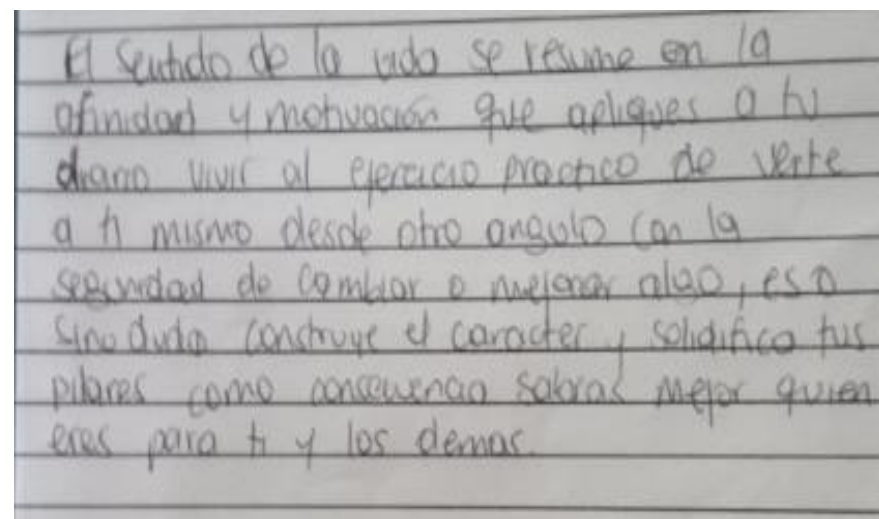 El sentido de la vida se resume en la
afinidad y motivación que apliques a tu
diario vivir al ejercicio practico de verte
a ti mismo desde otro angulo con la
seguridad de cambiar o mejorar algo, eso
sino duda construye el caracter, solidifica tus
pilares como consecuencia sabras mejor quien
eres para ti y los demas.